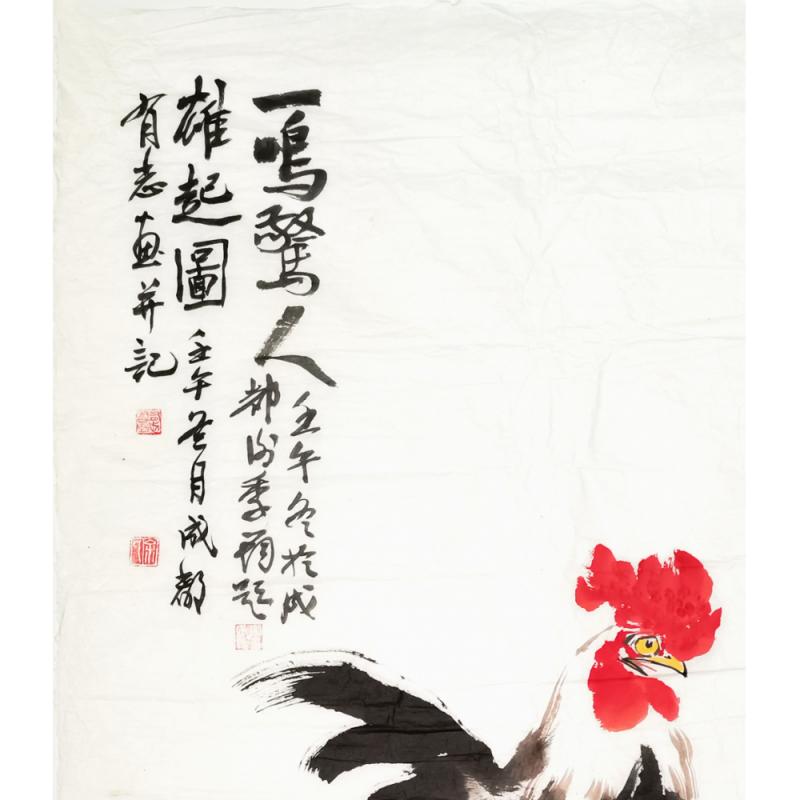 一鳴驚人
壬午冬於成
都
季
題
雄起圖
壬午冬月成都
有志畫并記